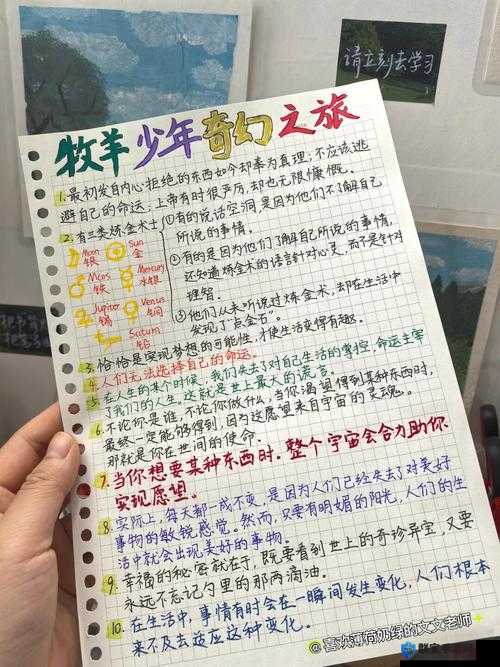 请立刻去学习
牧羊少年奇幻之旅
1. 最初发自内心拒绝的东西如今却奉为真理,不应该逃
避自己的命运,上帝有时很严厉,却也无限慷慨。
2. 有三类炼金术士
Moon 银
Sun 金
Mars 铁
Mercury 水银
Jupiter 锡
Venus 铜
Saturn 铅
①有的说话空洞,是因为他们不了解自己
所说的事情。
②有的是因为他们了解自己所说的事情,
还知道炼金术的语言针对心灵,而不是针对
理智。
③他们从未听说过炼金术,却在生活中
发现了“点金石”。
3. 恰恰是实现梦想的可能性,才使生活变得有趣。
4. 人们无法选择自己的命运。
5. 在人生的某个时候,我们失去了对自己生活的掌控,命运主宰
了我们的人生,这就是世上最大的谎言。
6. 不论你是谁,不论你做什么,当你渴望得到某种东西时,
最终一定能够得到,因为这愿望来自宇宙的灵魂。
那就是你在世间的使命。
7. 当你想要某种东西时,整个宇宙会合力助你
实现愿望。
8. 实际上,每天都一成不变,是因为人们已经失去了对美好
事物的敏锐感觉。然而,只要有明媚的阳光,人们的生
活中就会出现美好的事物。
9. 幸福的秘密就在于,既要看到世上的奇珍异宝,又要
永远不忘记勺里的那两滴油。
10. 在生活中,事情有时会在一瞬间发生变化,人们根本
来不及去适应这种变化。
@喜欢薄荷奶绿的文文老师